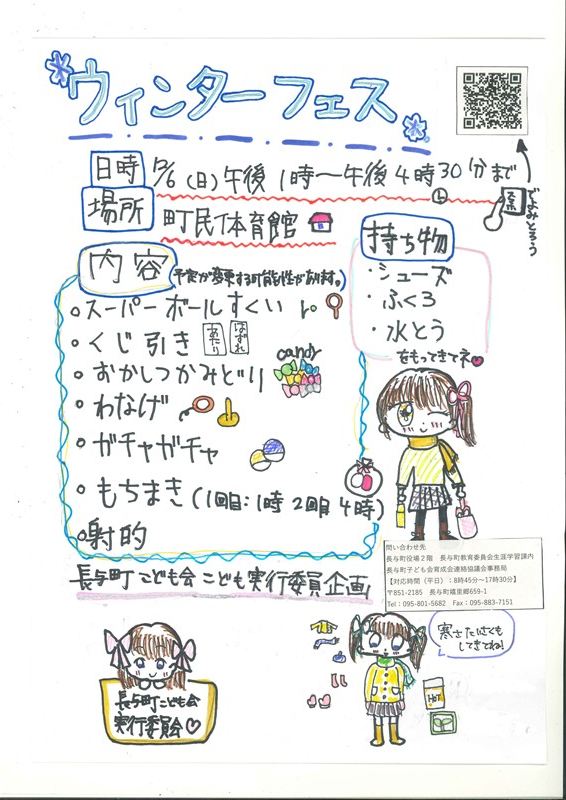 ウィンターフェス
日時 12/6(日)午後1時〜午後4時30分まで
場所 町民体育館
でよみとろう
内容
予定が変更する可能性があります。)
持ち物
・シューズ
・ふくろ
・水とう
をもってきてネ
スーパーボールすくい
くじ引き あたり はずれ
おかしつかみどり candy
わなげ
ガチャガチャ
もちまき(1回目:1時 2回目4時)
射的
長与町こども会 こども実行委員企画
問い合わせ先
長与町役場2階 長与町教育委員会生涯学習課内
長与町子ども会育成会連絡協議会事務局
【対応時間(平日):8時45分~17時30分】
〒851-2185 長与町嬉里郷659-1
Tel:095-801-5682 Fax:095-883-7151
長与町こども会
実行委員会♡
寒さたいさくも
してきてね!
HOT